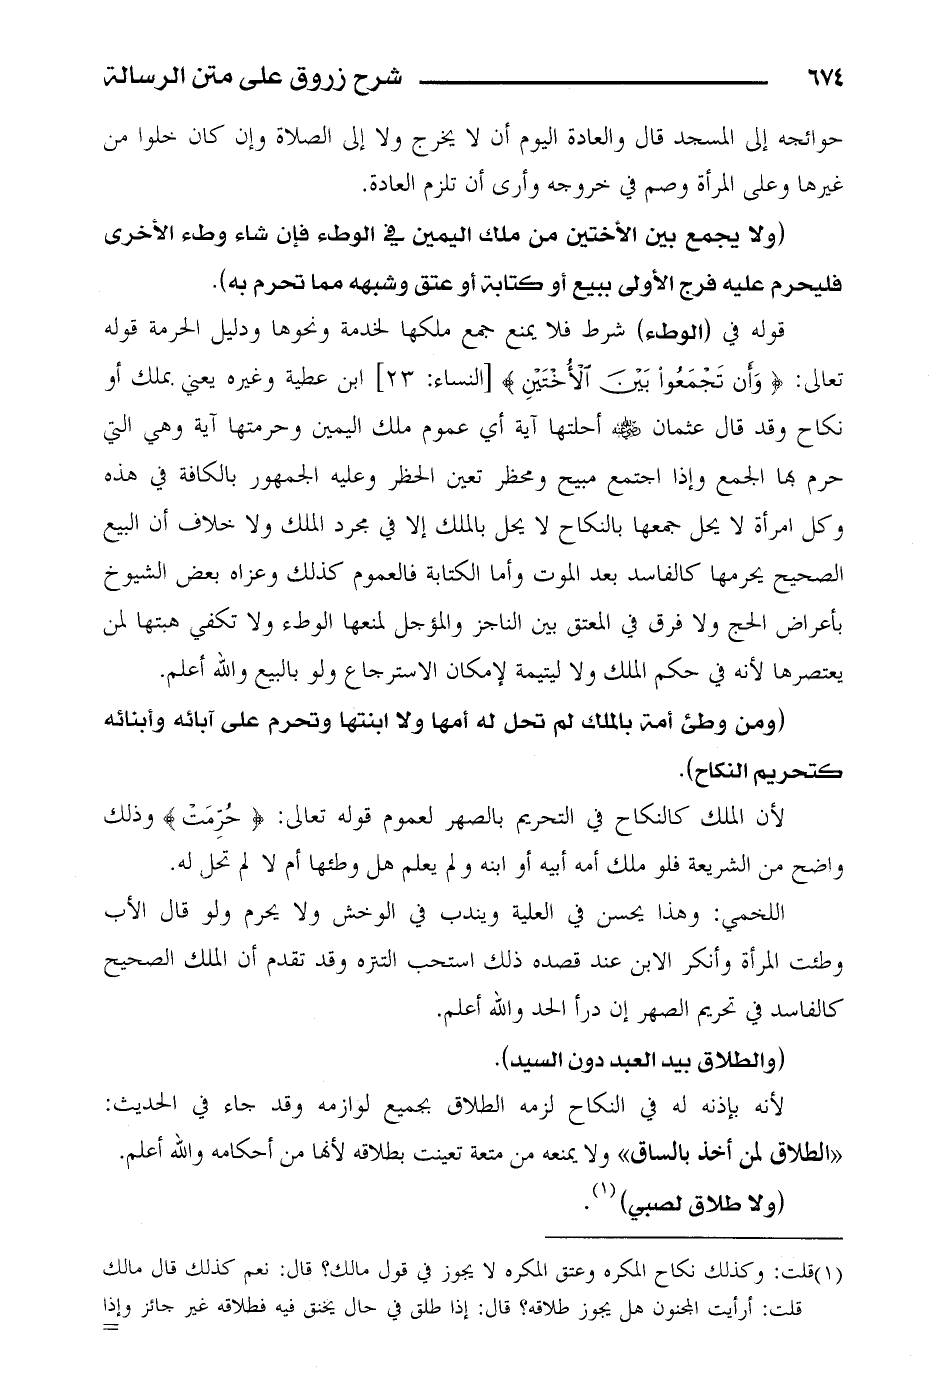 ٦٧٤ شرح زروق على متن الرسالة
حوائجه إلى المسجد قال والعادة اليوم أن لا يخرج ولا إلى الصلاة وإن كان خلوا من
غيرها وعلى المرأة وصم في خروجه وأرى أن تلزم العادة.
(ولا يجمع بين الأختين من ملك اليمين في الوطء فإن شاء وطء الأخرى
فليحرم عليه فرج الأولى ببيع أو كتابة أو عتق وشبهه مما تحرم به).
قوله في (الوطء) شرط فلا يمنع جمع ملكها لخدمة ونحوها ودليل الحرمة قوله
تعالى: ﴿ وَأَن تَجْمَعُوا۟ بَيْنَ ٱلْأُخْتَيْنِ ﴾ [النساء: ٢٣] ابن عطية وغيره يعني بملك أو
نكاح وقد قال عثمان ﵁ أحلتها آية أي عموم ملك اليمين وحرمتها آية وهي التي
حرم بها الجمع وإذا اجتمع مبيح ومحظر تعين الحظر وعليه الجمهور بالكافة في هذه
وكل امرأة لا يحل جمعها بالنكاح لا يحل بالملك إلا في مجرد الملك ولا خلاف أن البيع
الصحيح يحرمها كالفاسد بعد الموت وأما الكتابة فالعموم كذلك وعزاه بعض الشيوخ
بأعراض الحج ولا فرق في المعتق بين الناجز والمؤجل لمنعها الوطء ولا تكفي هبتها لمن
يعتصرها لأنه في حكم الملك ولا ليتيمة لإمكان الاسترجاع ولو بالبيع والله أعلم.
(ومن وطئ أمة بالملك لم تحل له أمها ولا ابنتها وتحرم على آبائه وأبنائه
كتحريم النكاح).
لأن الملك كالنكاح في التحريم بالصهر لعموم قوله تعالى: ﴿ حُرِّمَتْ ﴾ وذلك
واضح من الشريعة فلو ملك أمه أبيه أو ابنه ولم يعلم هل وطئها أم لا لم تحل له.
اللخمي: وهذا يحسن في العلية ويندب في الوخش ولا يحرم ولو قال الأب
وطئت المرأة وأنكر الابن عند قصده ذلك استحب التنزه وقد تقدم أن الملك الصحيح
كالفاسد في تحريم الصهر إن درأ الحد والله أعلم.
(والطلاق بيد العبد دون السيد).
لأنه بإذنه له في النكاح لزمه الطلاق بجميع لوازمه وقد جاء في الحديث:
«الطلاق لمن أخذ بالساق» ولا يمنعه من متعة تعينت بطلاقه لأنها من أحكامه والله أعلم.
(ولا طلاق لصبي)(١).
(١)قلت: وكذلك نكاح المكره وعتق المكره لا يجوز في قول مالك؟ قال: نعم كذلك قال مالك
قلت: أرأيت المجنون هل يجوز طلاقه؟ قال: إذا طلق في حال يخنق فيه فطلاقه غير جائز وإذا
=